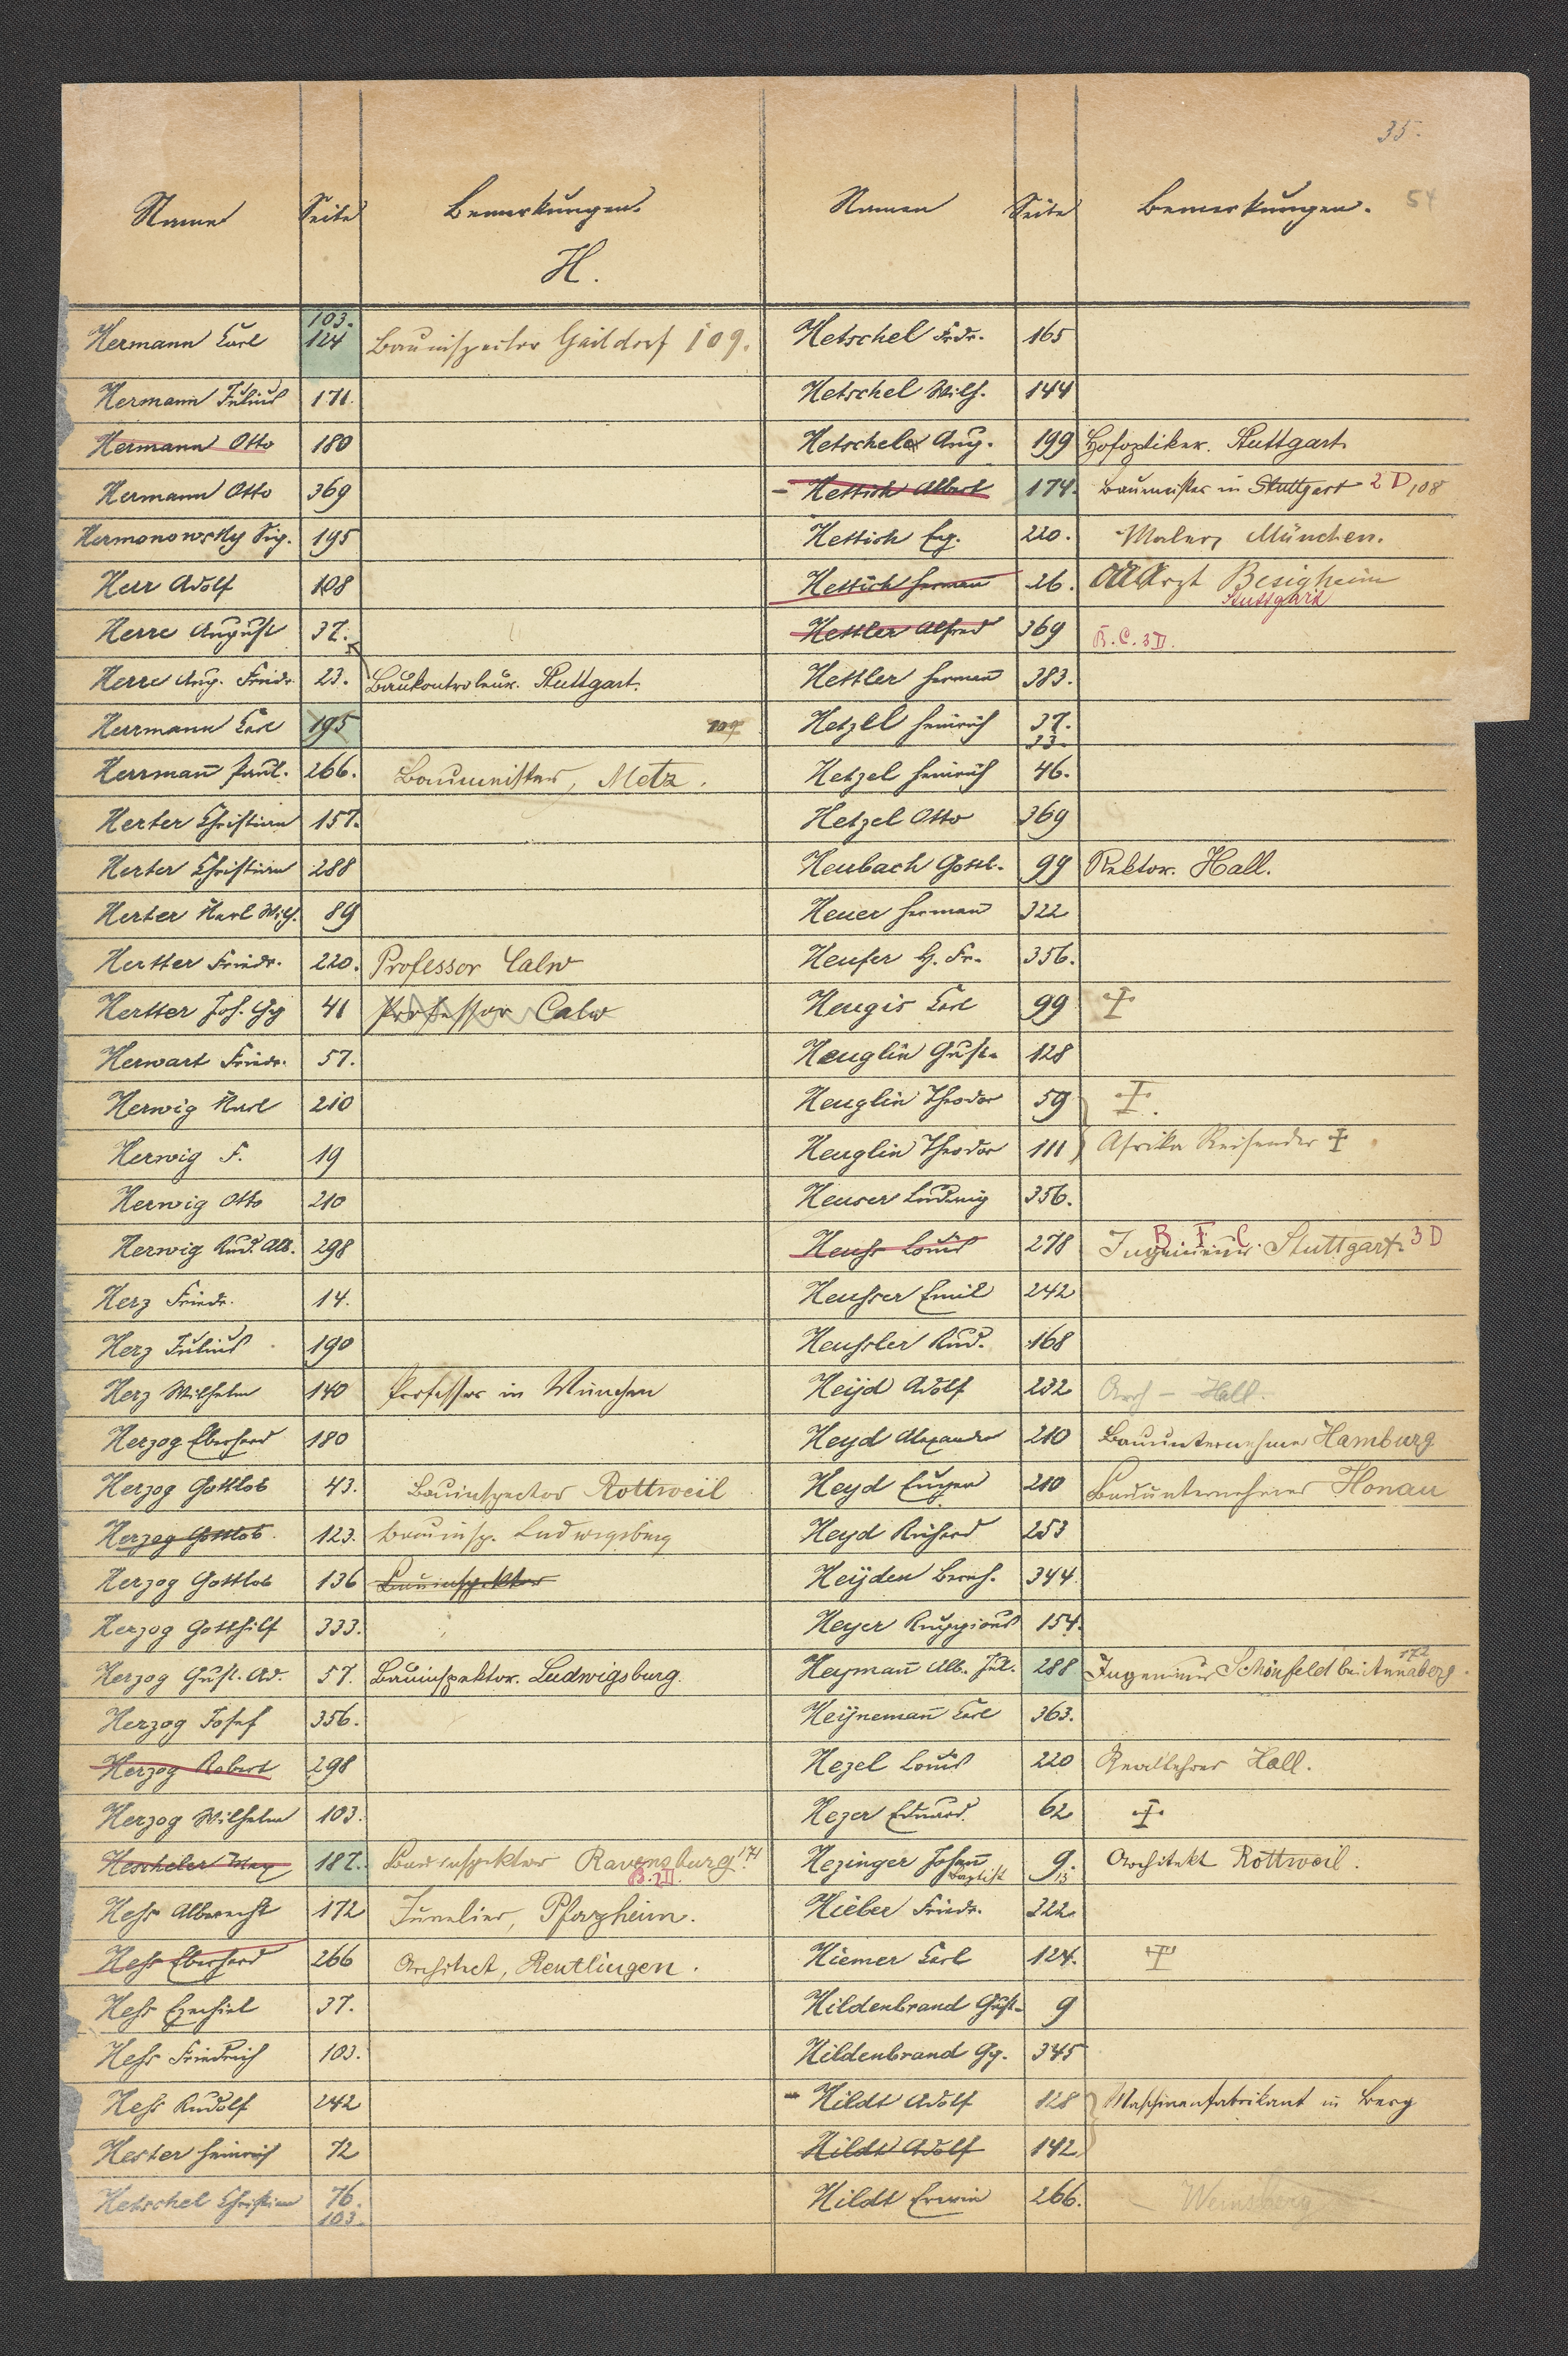 35.
54
Name Seite Bemerkungen.
H.
Hermann Carl 103. 124 Bauinspector Gaildorf 109.
Hermann Julius 171.
Hermann Otto 180
Hermann Otto 369
Hermonowsky Sig. 195
Herr Adolf 108
Herre August 37.
Herre Aug. Friedr. 23. Baukontroleur. Stuttgart.
Herrmann Carl 195 107
Herrman̄ Paul. 266. Baumeister, Metz.
Herter Christian 157.
Herter Christian 288
Herter Karl Wilh. 89
Hertter Friedr. 220. Professor Calw
Hertter Joh. Gg 41 Professor Calw
Herwart Friedr. 57.
Herwig Karl 210
Herwig F. 19
Herwig Otto 210
Herwig Rud. Alb. 298
Herz Friedr. 14.
Herz Julius 190
Herz Wilhelm 140 Professor in München
Herzog Eberhard 180
Herzog Gottlob 43. Bauinspector Rottweil
Herzog Gottlob 123. Bauinsp. Ludwigsburg
Herzog Gottlob 136 Bauinspektor
Herzog Gotthilf 333.
Herzog Gust. Ad. 57. Bauinspektor. Ludwigsburg.
Herzog Josef 356.
Herzog Robert 298
Herzog Wilhelm 103.
Hescheler Max 187. Bauinspektor Ravensburg 171
B. 2 D.
Hess Albrecht 172 Juwelier, Pforzheim.
Hess Eberhard 266 Architect, Reutlingen.
Hess Ezechiel 37.
Hess Friedrich 103.
Hess Rudolf 242
Hester Heinrich 72
Hetschel Christian 76. 103.
Namen Seite Bemerkungen.
Hetschel Frdr. 165
Hetschel Wilh. 144
Hetschele Aug. 199 Hofoptiker. Stuttgart.
- Hettich Albert 174. Baumeister in Stuttgart 2 D 108
Hettich Eug. 220. Maler, München.
Hettich Herman 26. OAArzt Besigheim
Stuttgart
Hettler Alfred 369 B. C. 3 D.
Hettler Herman̄ 383.
Hetzel Heinrich 37. 33.
Hetzel Heinrich 46.
Hetzel Otto 369
Heubach Gottl. 99 Rektor. Hall.
Heuer Herman̄ 322
Heufer G. Fr. 356.
Heugis Carl 99 ✝
Heuglin Gust. 128
Heuglin Theodor 59 ✝.
Heuglin Theodor 111 Afrika Reisender ✝
Heuser Ludwig 356.
Heuss Louis 278 Ingenieur. Stuttgart. B F C. 3 D
Heusser Emil 242
Heussler Rud. 168
Heÿd Adolf 232 Arch - Hall.
Heyd Alexander 210 Bauunternehmer Hamburg
Heyd Eugen 210 Bauunternehmer Honau
Heyd Richard 253
Heÿden Bernh. 344
Heyer 154.
Heyman̄ Alb. Jul. 288 Ingenieur Schönfeld bei Annaberg. 172
Heÿneman̄ Carl 363.
Hezel Louis 220 Reallehrer Hall.
Hezer Eduard. 62 ✝
Hezinger Johan̄ Baptist 9 13. Architekt Rottweil.
Hieber Friedr. 322.
Hiemer Carl 124. ✝
Hildenbrand Gust. 9
Hildenbrand Gg. 345
- Hildt Adolf 128 Maschinenfabrikant in Berg
Hildt Adolf 142
Hildt Erwin 266. Weinsberg